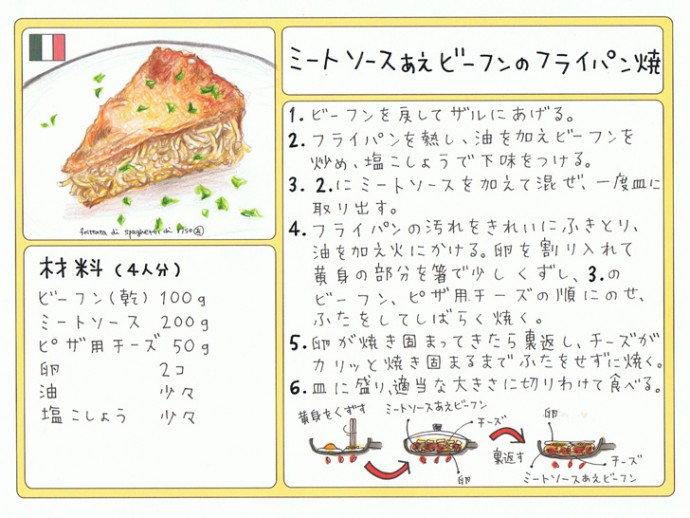 ミートソースあえビーフンのフライパン焼
frittata di spaghetti di riso
材料(4人分)
ビーフン(乾) 100g
ミートソース 200g
ピザ用チーズ 50g
卵 2コ
油 少々
塩こしょう 少々
1. ビーフンを戻してザルにあげる。
2. フライパンを熱し、油を加えビーフンを
炒め、塩こしょうで下味をつける。
3. 2.にミートソースを加えて混ぜ、一度皿に
取り出す。
4. フライパンの汚れをきれいにふきとり、
油を加え火にかける。卵を割り入れて
黄身の部分を箸で少しくずし、3.の
ビーフン、ピザ用チーズの順にのせ、
ふたをしてしばらく焼く。
5. 卵が焼き固まってきたら裏返し、チーズが
カリッと焼き固まるまでふたをせずに焼く。
6. 皿に盛り、適当な大きさに切りわけて食べる。
黄身をくずす
ミートソースあえビーフン
チーズ
卵
裏返す
卵
チーズ
ミートソースあえビーフン